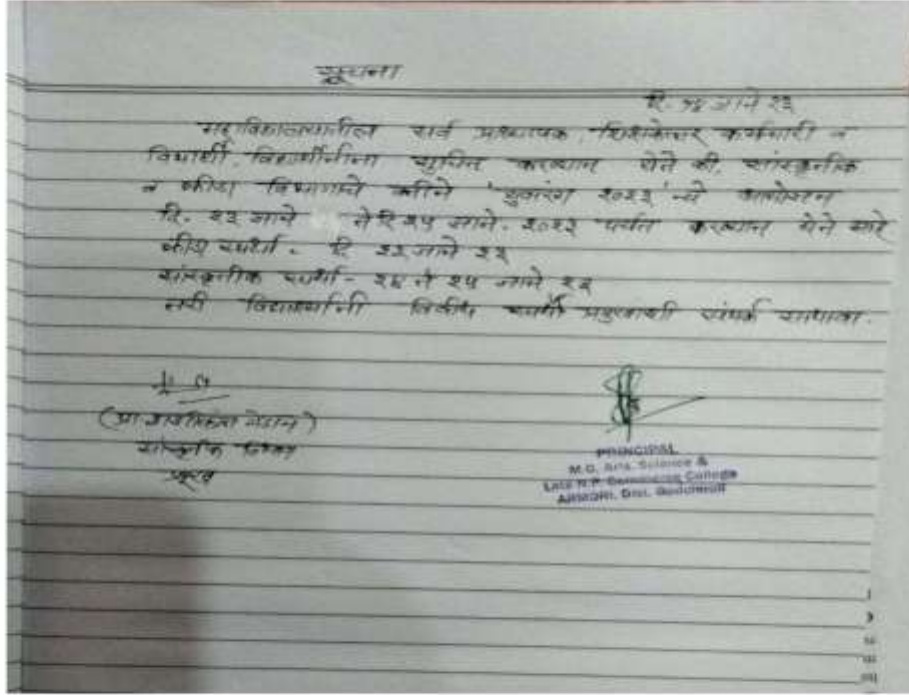 सूचना
दि. १४ जाने २३
महाविद्यालयातील सर्व प्राध्यापक, शिक्षकेत्तर कर्मचारी व
विद्यार्थी, विद्यार्थीनींना सूचित करण्यात येते की, सांस्कृतिक
व क्रीडा विभागाचे वतीने 'युवारंग २०२३' चे आयोजन
दि. २३ जाने ते दि २५ जाने. २०२३ पर्यंत करण्यात येते आहे
क्रीडा स्पर्धा - दि. २३ जाने २३
सांस्कृतिक स्पर्धा - २४ ते २५ जाने २३
तरी विद्यार्थ्यांनी स्पर्धा प्रमुखाशी संपर्क साधावा.
(प्रा.
सांस्कृतिक विभाग
प्रमुख
PRINCIPAL
M.G. Arts, Science &
Late N.P. Commerce College
ARMORI, Dist. Gadchiroli